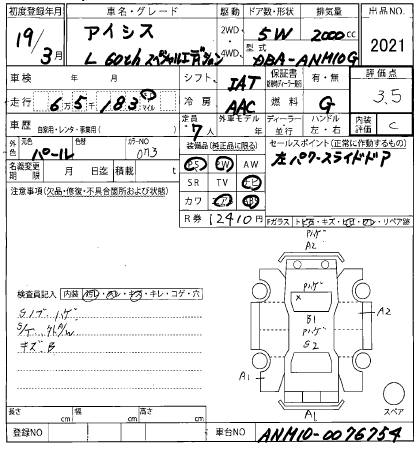 初度登録年月 車名・グレード 駆動 ドア数・形状 排気量 出品NO.
19/3月 アイシス L 60th スペシャルエディション 2WD・4WD 5W 2000cc 2021
型式 DBA-ANM10G
車検 年 月 シフト IAT 保証書 有・無 評価点 3.5
走行 6万5千183 km マイル 冷房 AAC 燃料 G
車歴 自家用・レンタ・事業用( ) 定員 7人 外車モデル 年 ディーラー・並行 ハンドル 左・右 内装評価 C
外色 元色 パール 色替 カラーNO 073
装備品(純正品に限る) セールスポイント(正常に作動するもの)
PS PW AW 左パワースライドドア
名義変更期限 月 日迄 積載 t
SR TV ナビ
注意事項(欠品・修復・不具合箇所および状態)
カワ
R券 12410円
Fガラス トビ石・キズ・ヒビ・ワレ・リペア跡
検査員記入 内装 汚レ・ワレ・キズ・キレ・コゲ・穴
Sノブハゲ
キズB
A2
ハゲ
ハゲ
B1
ハゲ
S2
A2
A1
A1
スペア
長さ cm 幅 cm 高さ cm
登録NO 車台NO ANM10-0076754